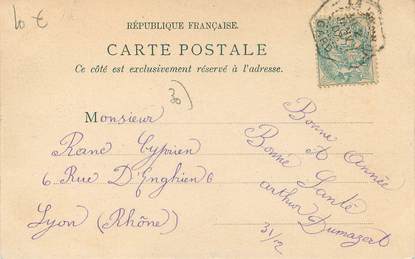 10 €
RÉPUBLIQUE FRANÇAISE.
CARTE POSTALE
Ce côté est exclusivement réservé à l'adresse.
30
Monsieur
Rane Cyprien
6 Rue D'Enghien 6
Lyon (Rhône)
Bonne Année
et
Bonne Santé
arthur Dumazert
31/12
GARD